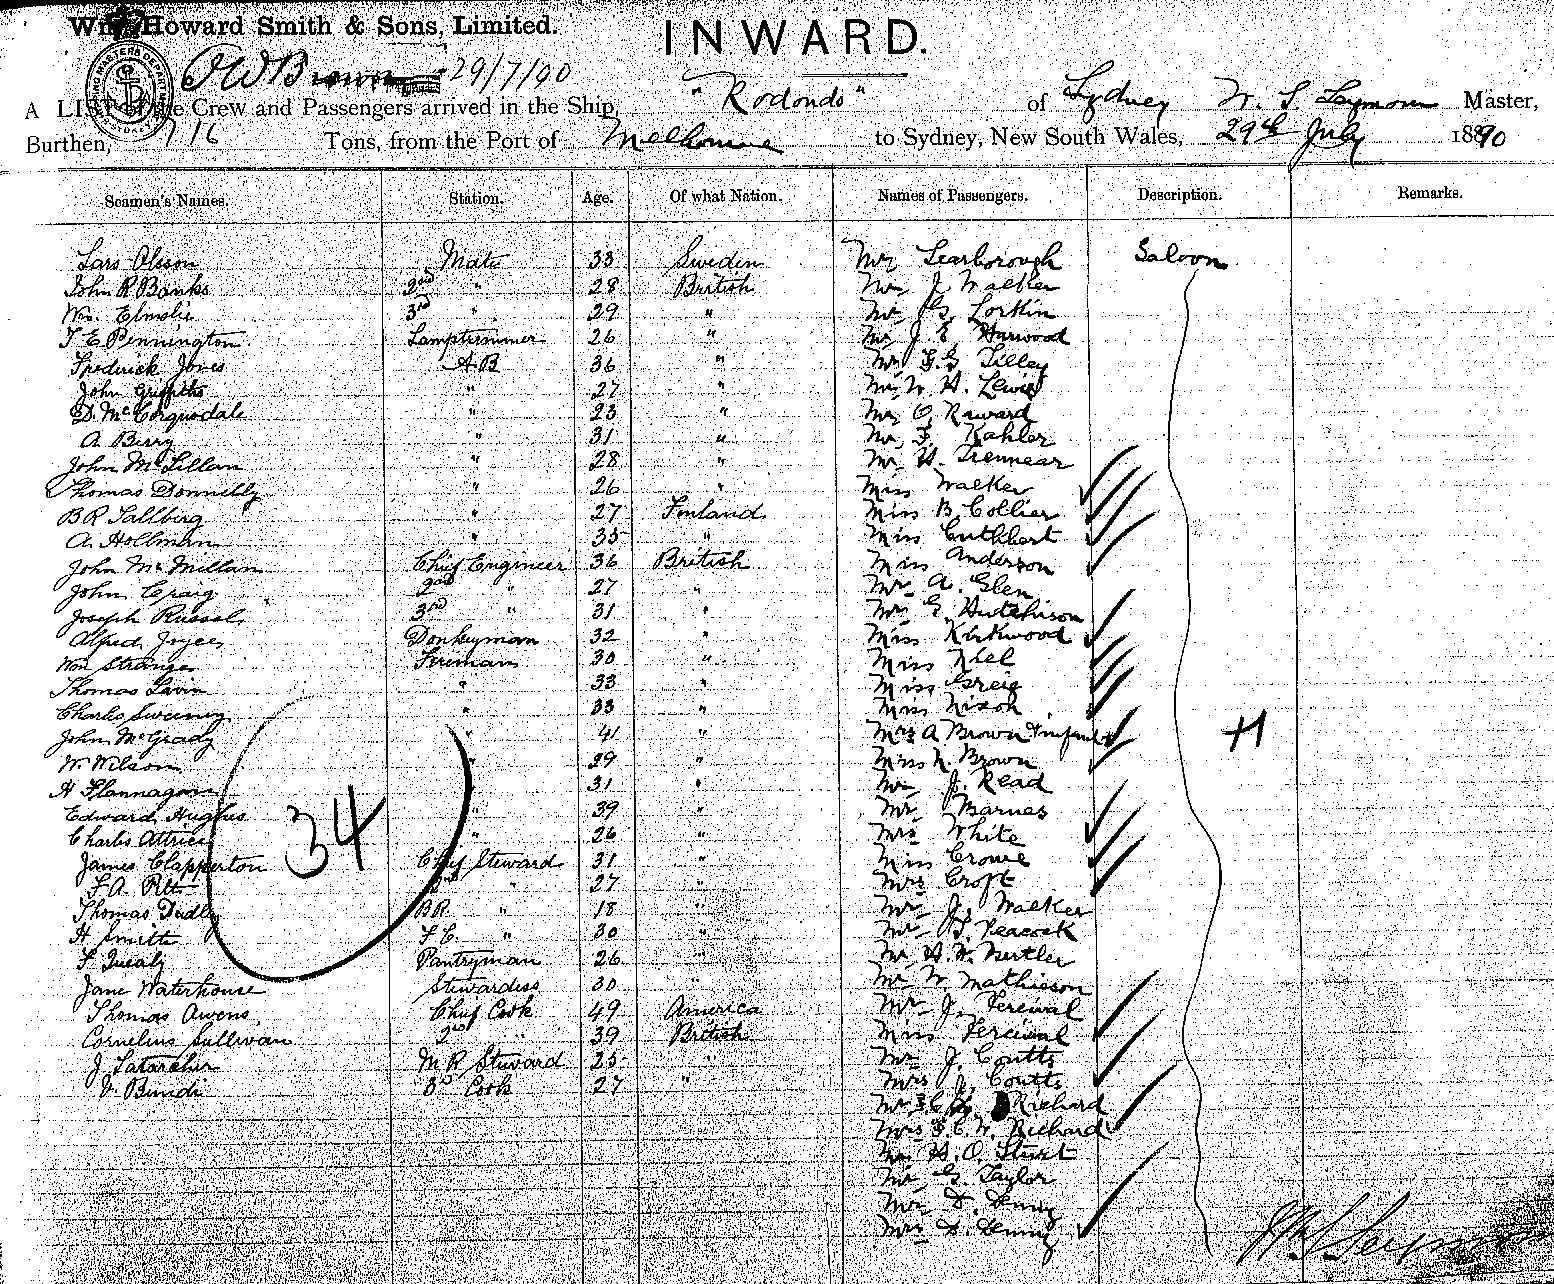 Wm. Howard Smith & Sons, Limited.
INWARD.
29/7/90
A LIST of the Crew and Passengers arrived in the Ship, "Rodondo" of Sydney W. S. Seymour Master,
Burthen, 716 Tons, from the Port of Melbourne to Sydney, New South Wales, 29th July 1890
Seamen's Names. Station. Age. Of what Nation. Names of Passengers. Description. Remarks.
Lars Olsson Mate 33 Sweden Mr Scarborough Saloon
John R Banks 2nd " 28 British Mr J Walker
Wm. Elmslie 3rd " 29 " Mr G. Lorkin
T E Pennington Lamptrimmer 26 " Mr J. E. Harwood
Frederick Jones A.B 36 " Mr F. G Tilley
John Griffiths " 27 " Mr W. H. Lewis
D. McCorquodale " 23 " Mr O. Raward
A. Berry " 31 " Mr F. Kahler
John McLellan " 28 " Mr H. Trennear
Thomas Donnelly " 26 " Miss Walker
B R Sallberg " 27 Finland Miss B. Collier
A. Hollman " 35 " Miss Cuthbert
John McMillan Chief Engineer 36 British Miss Anderson
John Craig 2nd " 27 " Mr A. Glen
Joseph Russel 3rd " 31 " Mr G. Hutchison
Alfred Joyce Donkeyman 32 " Miss Kirkwood
Wm Strange Fireman 30 " Miss Niel
Thomas Lavin " 33 " Miss Greig
Charles Sweeney " 33 " Miss Nixon
John McGrady " 41 " Mrs A Brown & infant H
W. Wilson " 29 " Miss N. Brown
H Flannagan " 31 " Mr J. Read
Edward Hughes " 39 " Mr Barnes
Charles Attrice " 26 " Mrs White
34
James Clapperton Chief Steward 31 " Miss Crowe
F. A. 2nd " 27 " Mrs Croft
Thomas Dudley BR " 18 " Mr J. Walker
H Smith F C " 30 " Mr F. Peacock
Pantryman 26 " Mr H. W.
Jane Waterhouse Stewardess 30 " Mr W Mathieson
Thomas Owens Chief Cook 49 America Mr J. Percival
Cornelius Sullivan 2nd " 39 British Miss Percival
J M R Steward 25 " Mr J. Coutts
V. Bundi 3rd Cook 27 " Mrs J. Coutts
Mr F. C. W. Richard
Mrs F. C. W. Richard
Mr H. O. Sturt
Mr G. Taylor
Mr D. Denny
Mrs D. Denny
Wm S Seymour